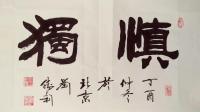 慎獨
丁酉
仲冬
於
北京
劉